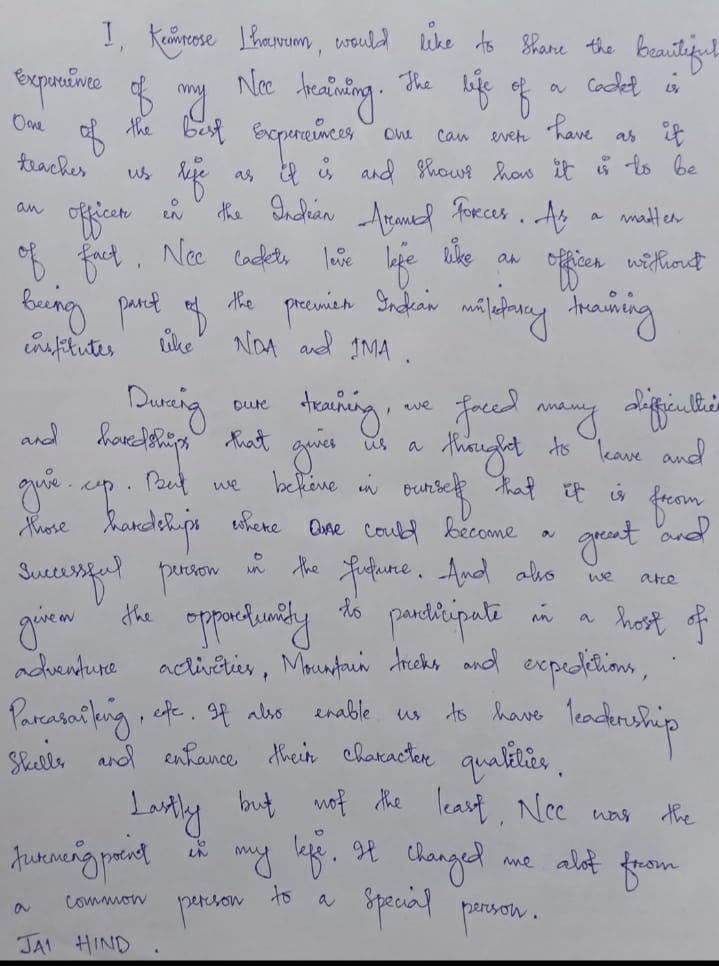 I, Kemreose Lhouvum, would like to share the beautiful
Experience of my Ncc training. The life of a Cadet is
One of the Best Experiences one can ever have as it
teaches us life as it is and shows how it is to be
an officer in the Indian Armed Forces. As a matter
of fact, Ncc cadets live life like an officer without
being part of the premier Indian military training
institutes like NDA and IMA.
During our training, we faced many difficulties
and hardships that gives us a thought to leave and
give up. But we believe in ourself that it is from
those hardships where One could become a great and
Successful person in the future. And also we are
given the opportunity to participate in a host of
adventure activities, Mountain treks and expeditions,
Parasailing, etc. It also enable us to have leadership
Skills and enhance their character qualities.
Lastly but not the least, Ncc was the
turning point in my life. It changed me alot from
a common person to a Special person.
JAI HIND.